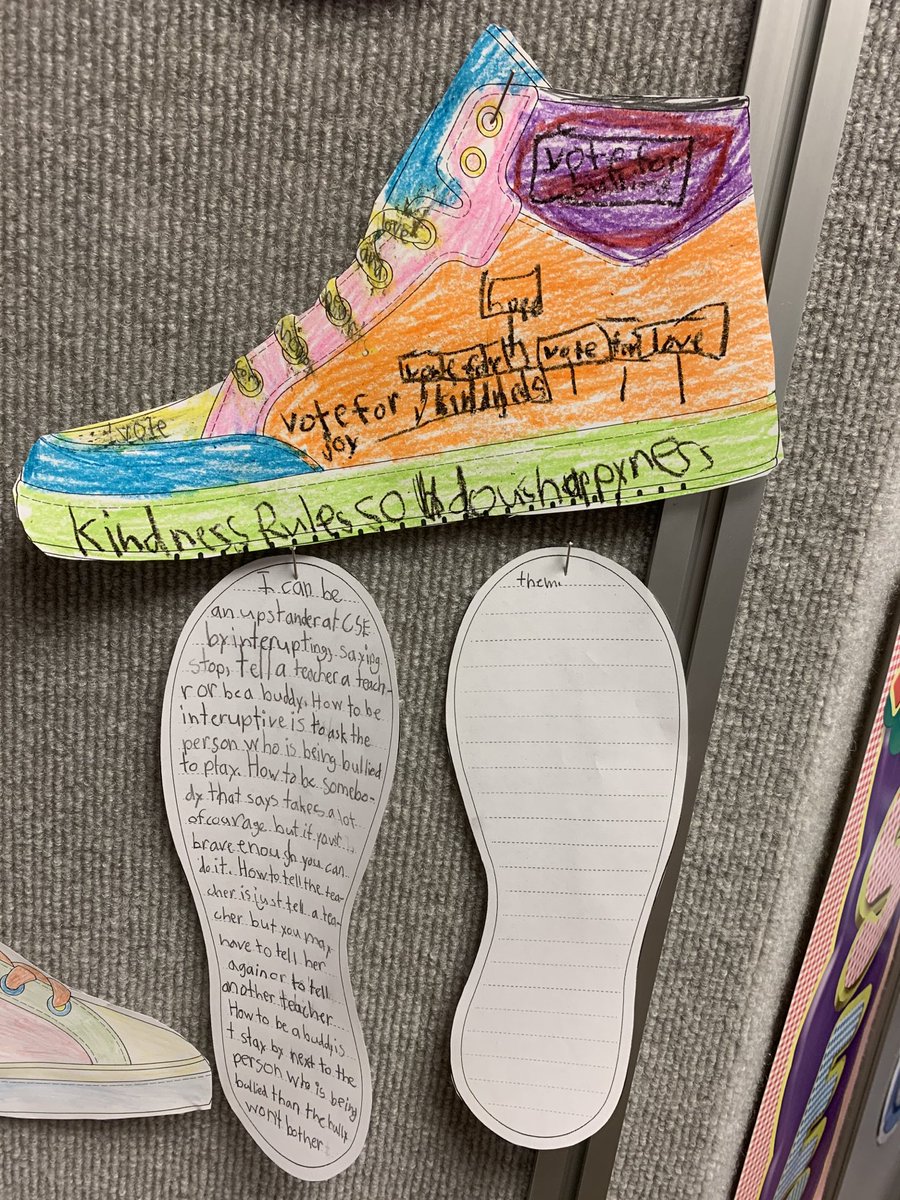 vote for
bulling
hope
love
vote for
vote for love
kindness
vote for
joy
vote
kindness Rules so does happyness
I can be
an upstander at CSE
by interupting, saying
stop, tell a teacher a teach-
r or be a buddy. How to be
interuptive is to ask the
person who is being bullied
to play. How to be somebo-
dy that says takes a lot
of courage but if your
brave enough you can
do it. How to tell the tea-
cher is just tell a tea-
cher but you may
have to tell her
again or to tell
another teacher
How to be a buddy is
t stay by next to the
person who is being
bullied than the bully
wont bother
them.